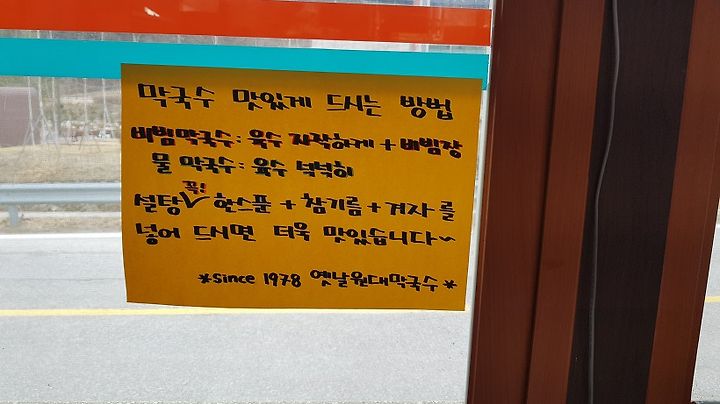 막국수 맛있게 드시는 방법
비빔막국수: 육수 자작하게 + 비빔장
물 막국수: 육수 넉넉히
설탕 꼭! 한스푼 + 참기름 + 겨자를
넣어 드시면 더욱 맛있습니다~
*since 1978 옛날원대막국수*